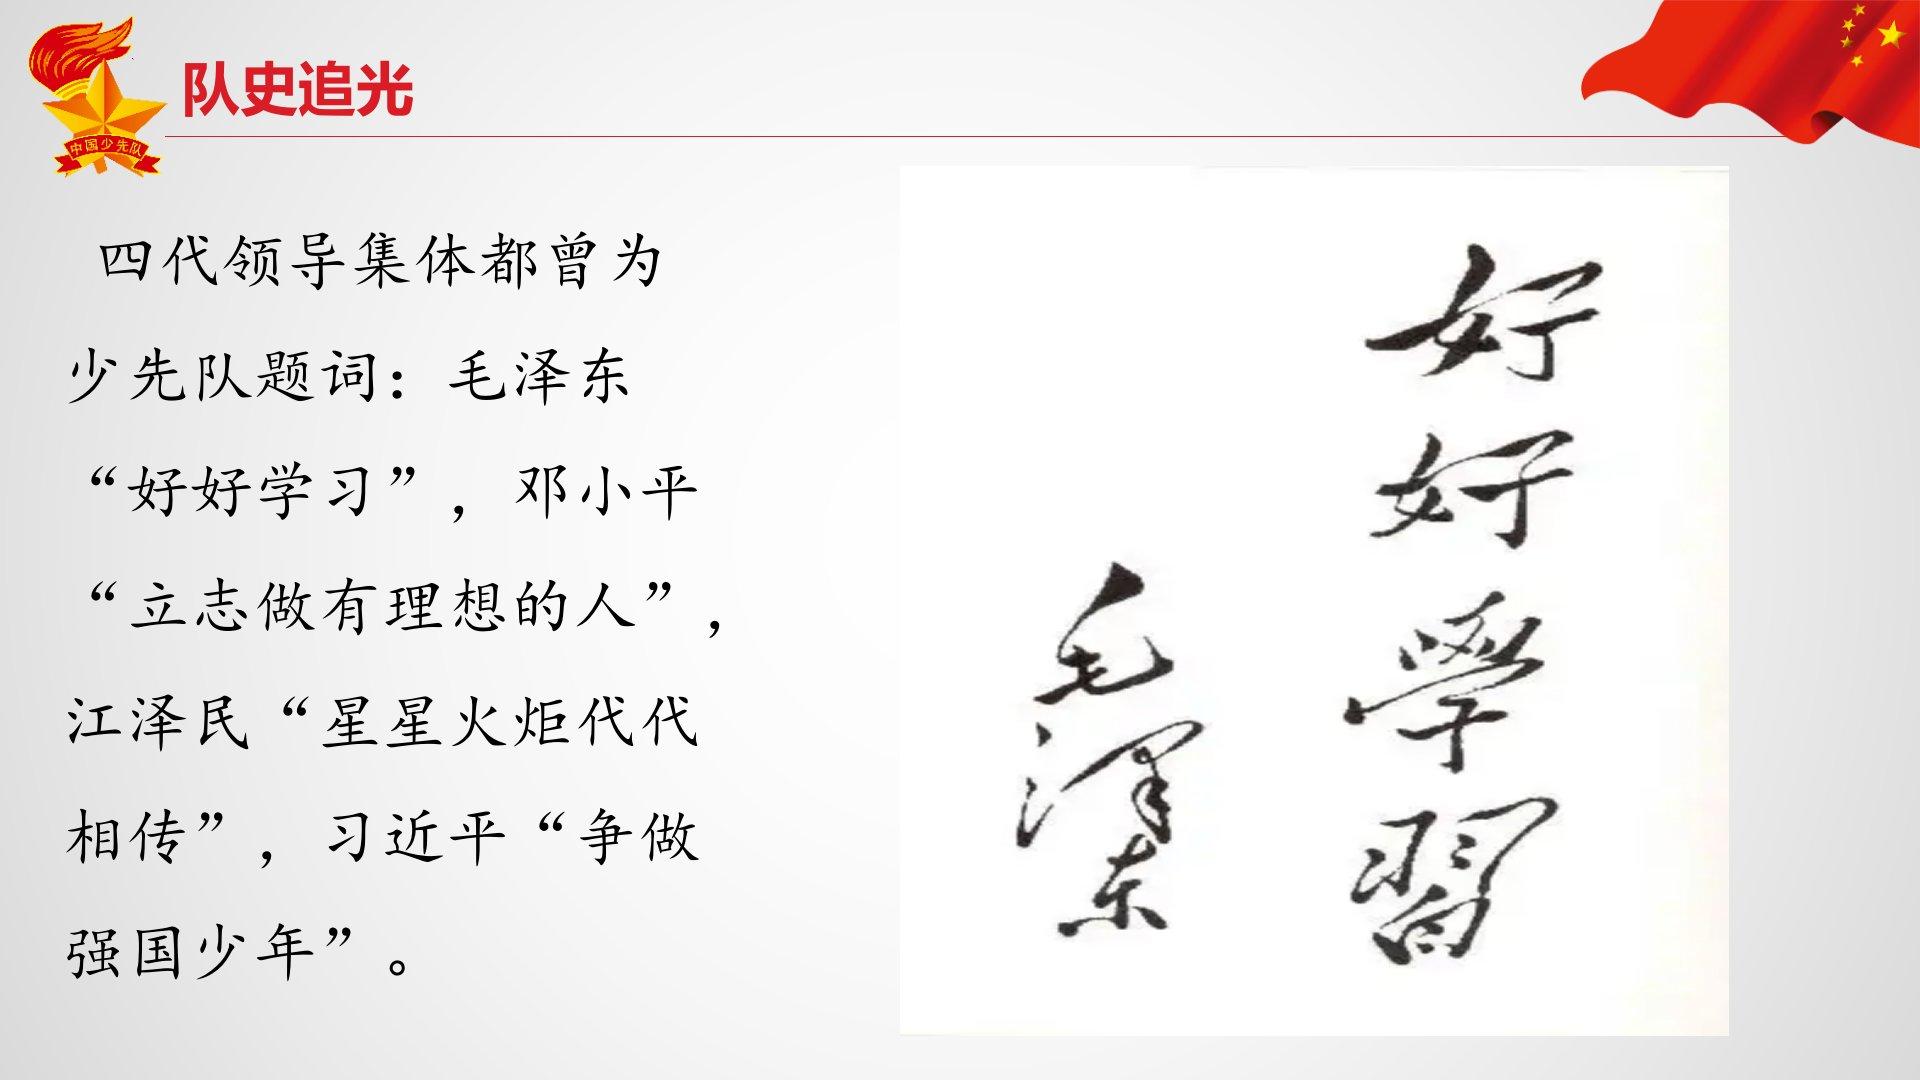 队史追光
中国少先队
四代领导集体都曾为
少先队题词：毛泽东
“好好学习”，邓小平
“立志做有理想的人”，
江泽民“星星火炬代代
相传”，习近平“争做
强国少年”。
好好学習
毛泽东